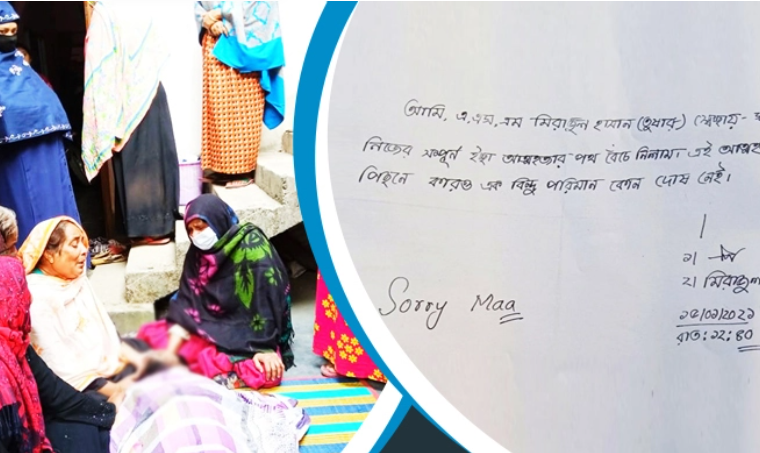 আমি, এ,এস,এম মিরাজুল হাসান (তুষার) স্বেচ্ছায়-
নিজের সম্পূর্ণ ইচ্ছা আত্মহত্যার পথ বেঁচে নিলাম। এই
পিছনে কারও এক বিন্দু পরিমান কোন দোষ নেই।
১।
২। মিরাজুল
Sorry Maa
১৫/০১/২০২১
রাত: ১২:৪০